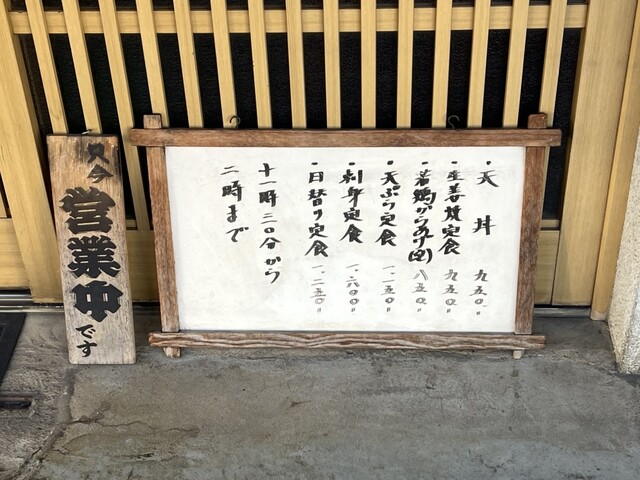 ・天丼 九五〇〃
・生姜焼定食 九五〇〃
・若鶏からあげ(定) 八五〇〃
・天ぷら定食 一、一五〇〃
・刺身定食 一、六〇〇〃
・日替り定食 一、二五〇〃
十一時三〇分から
二時まで
只今
営業中
です